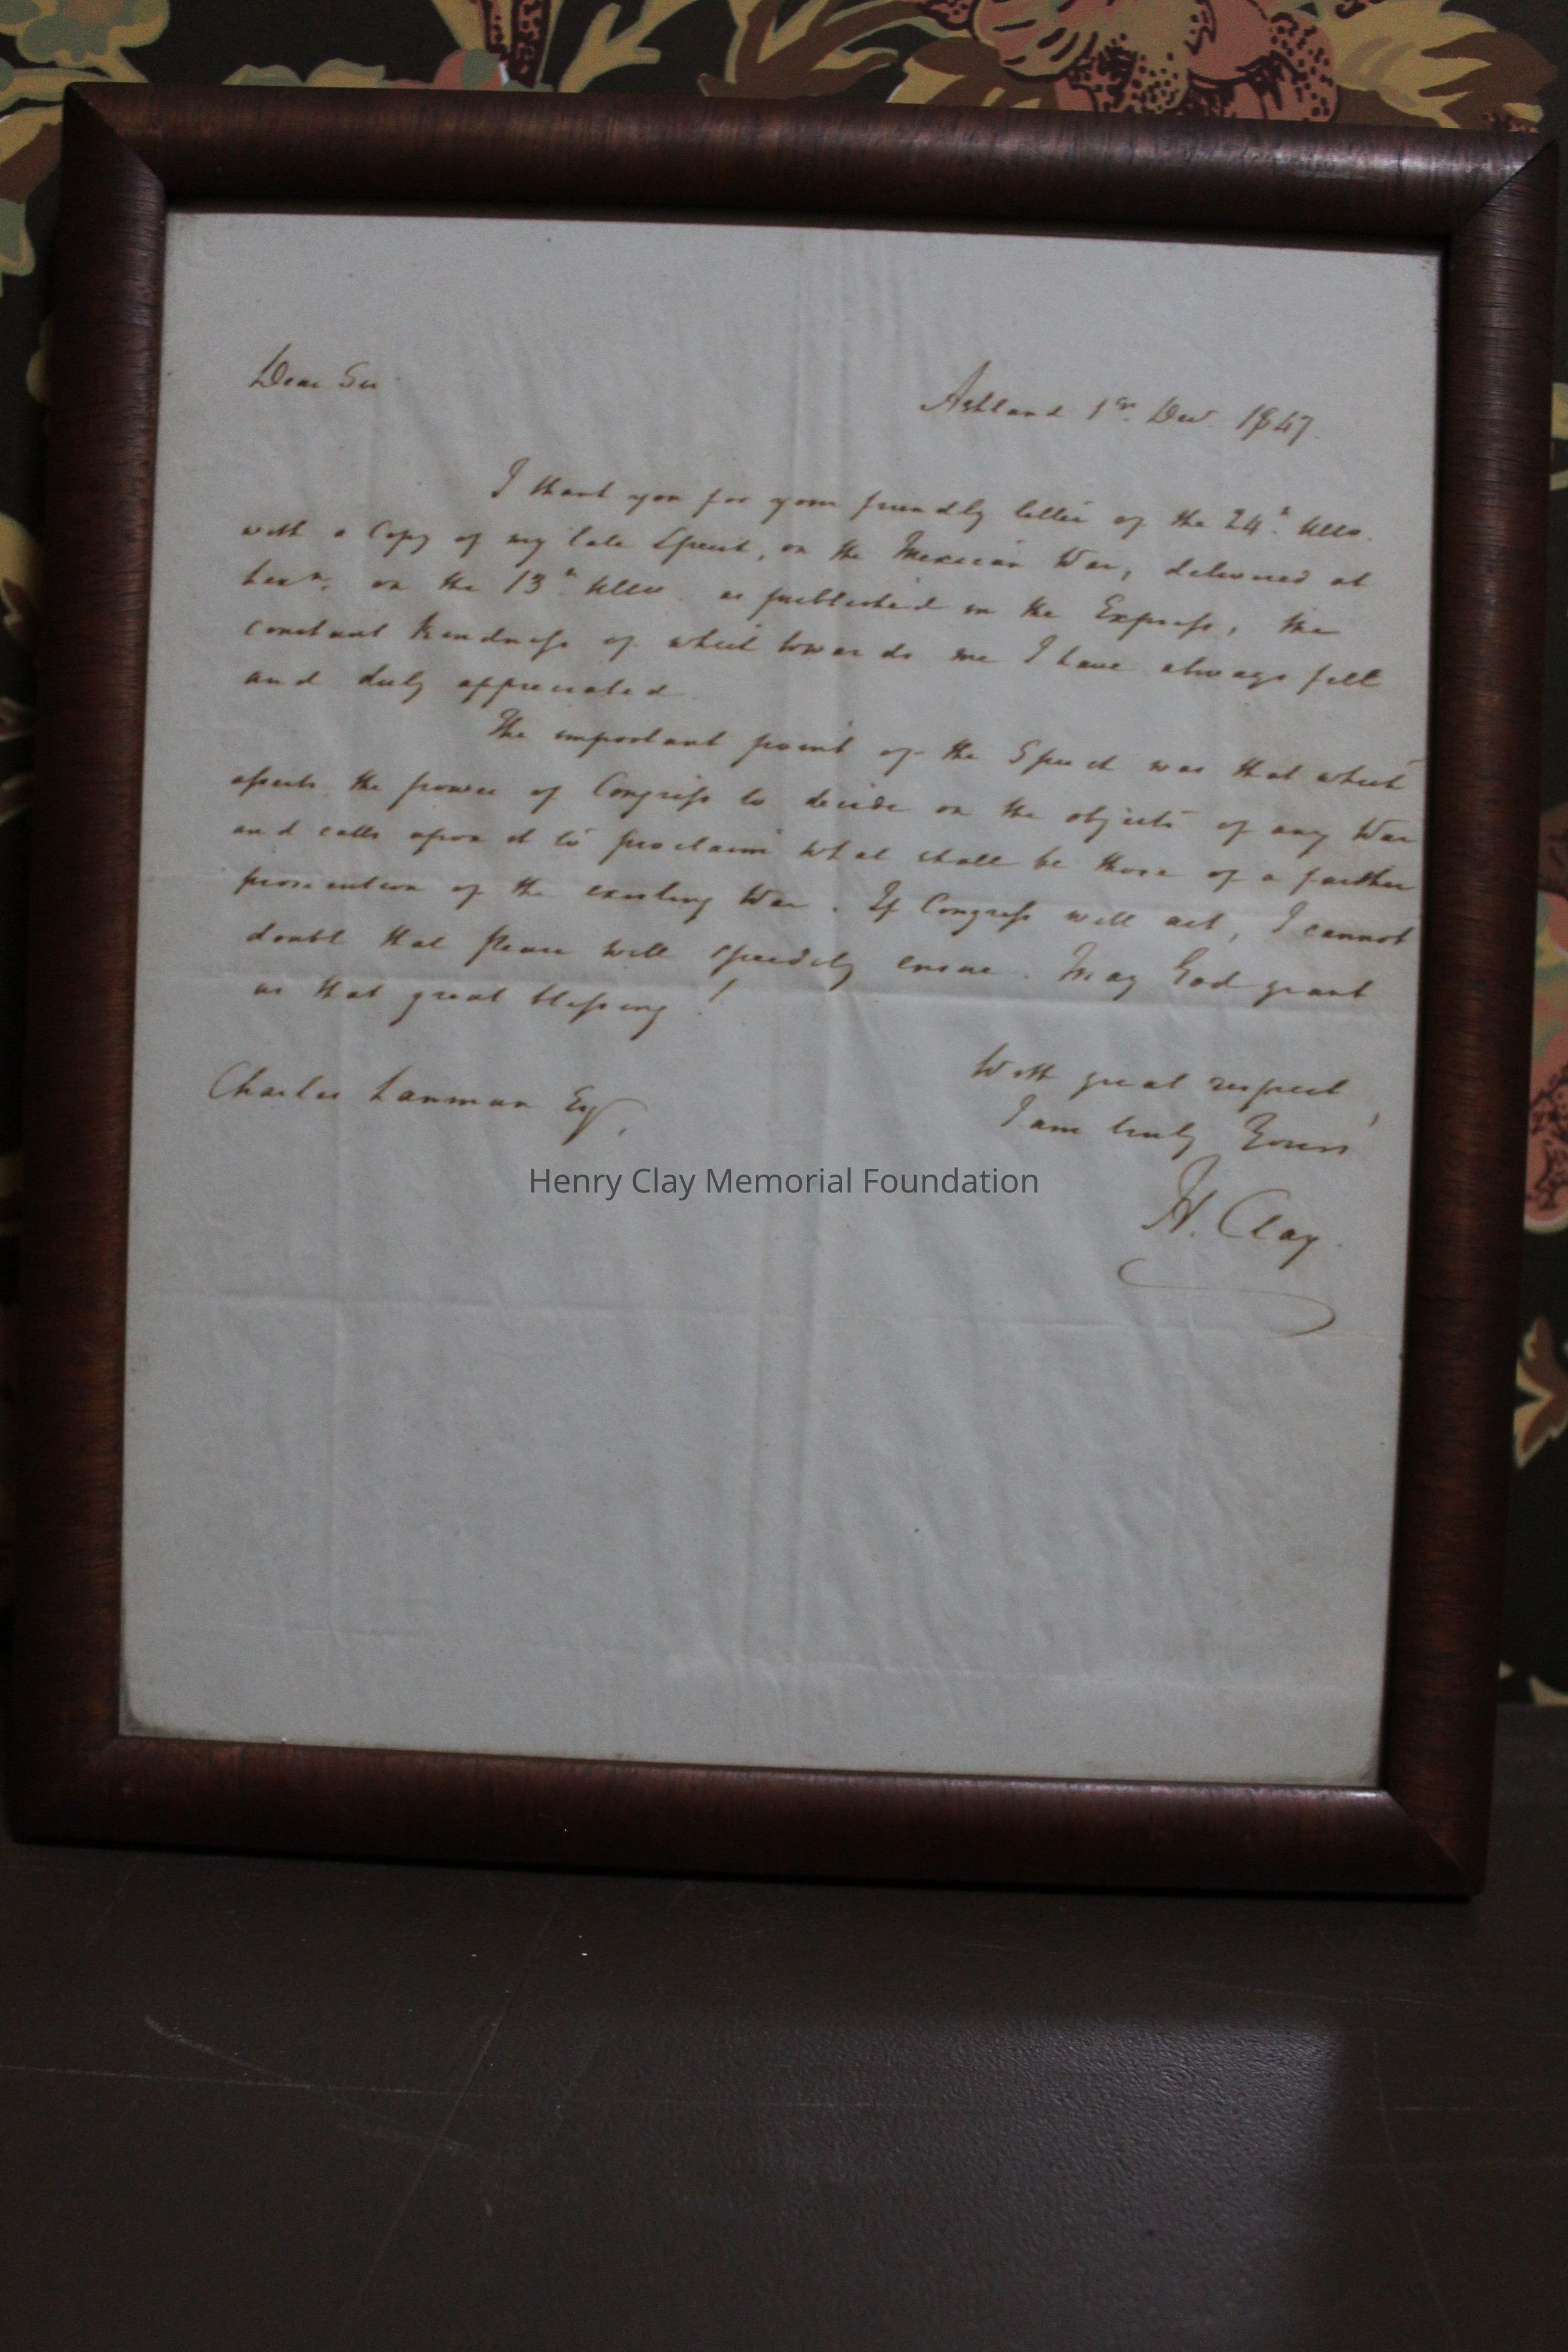 Dear Sir
Ashland 1st. Dec. 1847.
I thank you for your friendly letter of the 24h. Ulto.
with a Copy of my late Speech, on the Mexican War, delivered at
Lexn. on the 13h. Ulto. as published in the Express, the
constant kindness of which towards me I have always felt
and duly appreciated.
The important point of the Speech was that which
asserts the power of Congress to decide on the objects of any War
and calls upon it to proclaim what shall be those of a further
prosecution of the existing War. If Congress will act, I cannot
doubt that peace will speedily ensue. May God grant
us that great blessing!
With great respect,
I am truly Yours
H. Clay.
Charles Lanman Esq.
Henry Clay Memorial Foundation